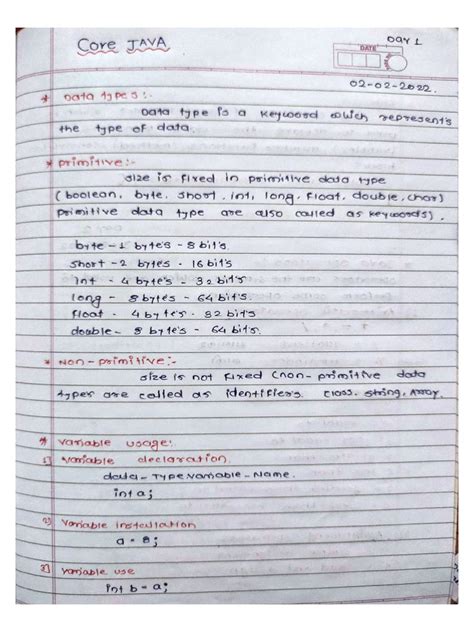 Day 1
Core JAVA
DATE
02-02-2022.
* Data types:-
Data type is a keyword which represents
the type of data.
* primitive:-
size is fixed in primitive data type
(boolean, byte, short, int, long, float, double, char)
primitive data type are also called as keywords).
byte - 1 byte's - 8 bit's
short - 2 bytes - 16 bit's
int - 4 byte's - 32 bit's
long - 8 bytes - 64 bit's.
float - 4 byte's - 32 bit's
double - 8 byte's - 64 bit's.
* Non-primitive:-
size is not fixed (non-primitive data
types are called as identifiers. class, string, Array.
* variable usage:
1) variable declaration.
data-Type variable-Name.
int a;
2) Variable installation
a = 8;
3) variable use
int b = a;